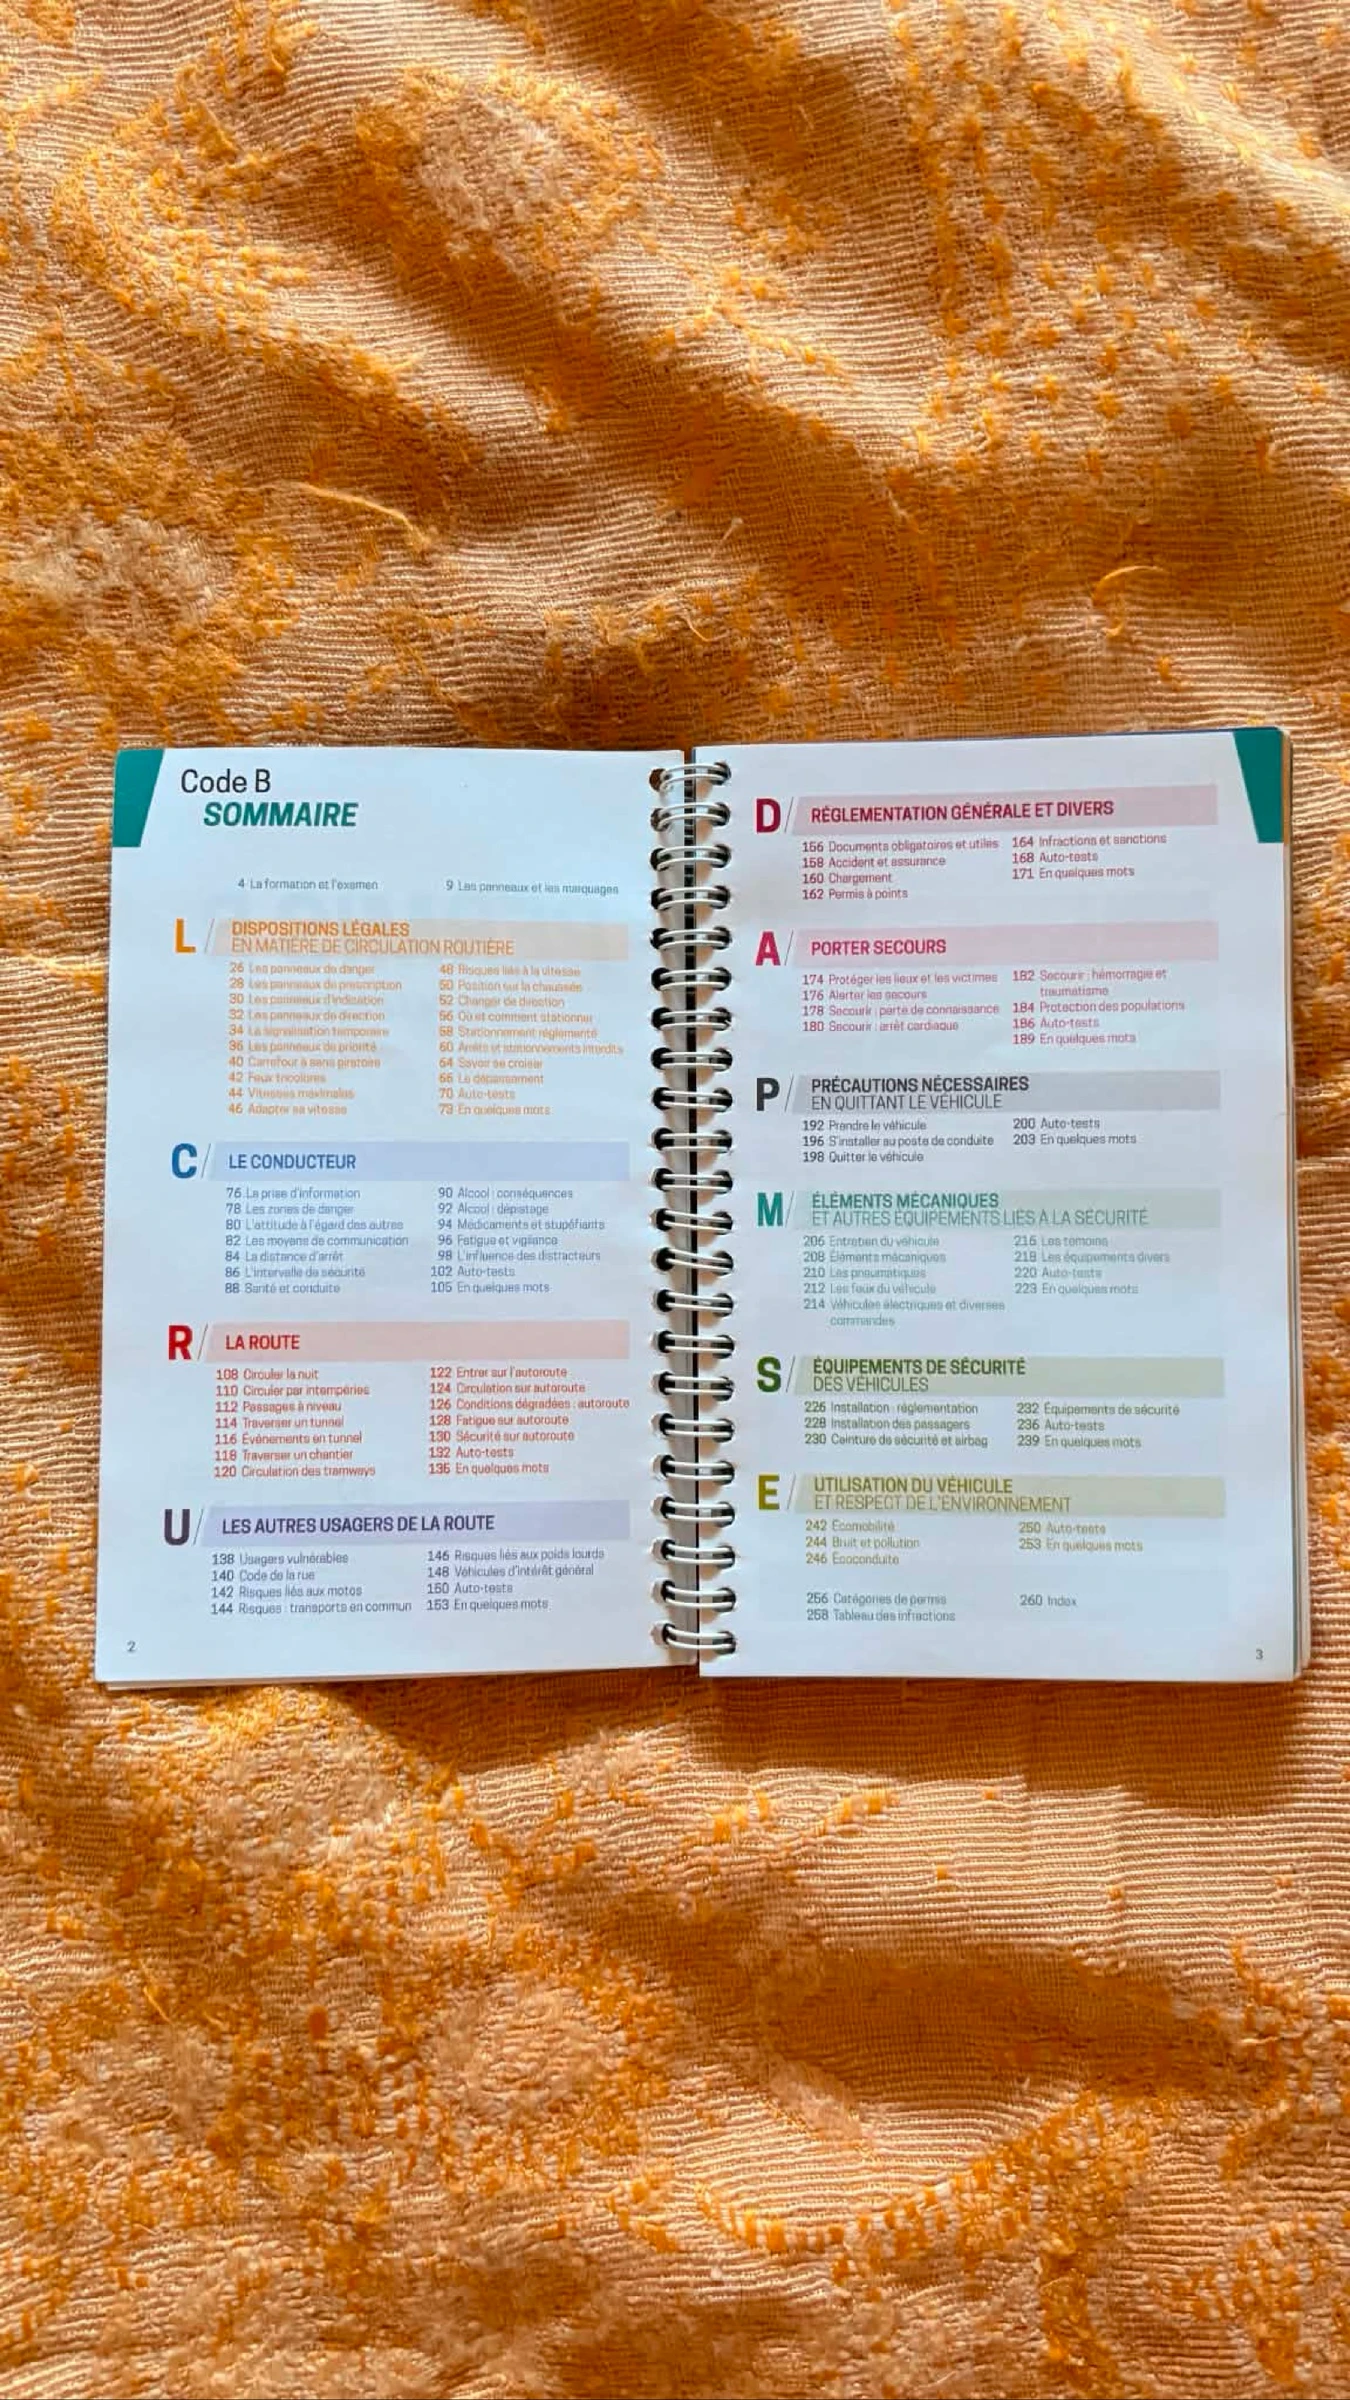 Code B
SOMMAIRE
4 La formation et l'examen
9 Les panneaux et les marquages
L/ DISPOSITIONS LÉGALES
EN MATIÈRE DE CIRCULATION ROUTIÈRE
26 Les panneaux de danger
28 Les panneaux de prescription
30 Les panneaux d'indication
32 Les panneaux de direction
34 La signalisation temporaire
36 Les panneaux de priorité
40 Carrefour à sens giratoire
42 Feux tricolores
44 Vitesses maximales
46 Adapter sa vitesse
48 Risques liés à la vitesse
50 Position sur la chaussée
52 Changer de direction
56 Où et comment stationner
58 Stationnement réglementé
60 Arrêts et stationnements interdits
64 Savoir se croiser
66 Le dépassement
70 Auto-tests
73 En quelques mots
C/ LE CONDUCTEUR
76 La prise d'information
78 Les zones de danger
80 L'attitude à l'égard des autres
82 Les moyens de communication
84 La distance d'arrêt
86 L'intervalle de sécurité
88 Santé et conduite
90 Alcool : conséquences
92 Alcool : dépistage
94 Médicaments et stupéfiants
96 Fatigue et vigilance
98 L'influence des distracteurs
102 Auto-tests
105 En quelques mots
R/ LA ROUTE
108 Circuler la nuit
110 Circuler par intempéries
112 Passages à niveau
114 Traverser un tunnel
116 Évènements en tunnel
118 Traverser un chantier
120 Circulation des tramways
122 Entrer sur l'autoroute
124 Circulation sur autoroute
126 Conditions dégradées : autoroute
128 Fatigue sur autoroute
130 Sécurité sur autoroute
132 Auto-tests
135 En quelques mots
U/ LES AUTRES USAGERS DE LA ROUTE
138 Usagers vulnérables
140 Code de la rue
142 Risques liés aux motos
144 Risques : transports en commun
146 Risques liés aux poids lourds
148 Véhicules d'intérêt général
150 Auto-tests
153 En quelques mots
2
D/ RÉGLEMENTATION GÉNÉRALE ET DIVERS
156 Documents obligatoires et utiles
158 Accident et assurance
160 Chargement
162 Permis à points
164 Infractions et sanctions
168 Auto-tests
171 En quelques mots
A/ PORTER SECOURS
174 Protéger les lieux et les victimes
176 Alerter les secours
178 Secourir : perte de connaissance
180 Secourir : arrêt cardiaque
182 Secourir : hémorragie et
traumatisme
184 Protection des populations
186 Auto-tests
189 En quelques mots
P/ PRÉCAUTIONS NÉCESSAIRES
EN QUITTANT LE VÉHICULE
192 Prendre le véhicule
196 S'installer au poste de conduite
198 Quitter le véhicule
200 Auto-tests
203 En quelques mots
M/ ÉLÉMENTS MÉCANIQUES
ET AUTRES ÉQUIPEMENTS LIÉS À LA SÉCURITÉ
206 Entretien du véhicule
208 Éléments mécaniques
210 Les pneumatiques
212 Les feux du véhicule
214 Véhicules électriques et diverses
commandes
216 Les témoins
218 Les équipements divers
220 Auto-tests
223 En quelques mots
S/ ÉQUIPEMENTS DE SÉCURITÉ
DES VÉHICULES
226 Installation : réglementation
228 Installation des passagers
230 Ceinture de sécurité et airbag
232 Équipements de sécurité
236 Auto-tests
239 En quelques mots
E/ UTILISATION DU VÉHICULE
ET RESPECT DE L'ENVIRONNEMENT
242 Écomobilité
244 Bruit et pollution
246 Écoconduite
250 Auto-tests
253 En quelques mots
256 Catégories de permis
258 Tableau des infractions
260 Index
3